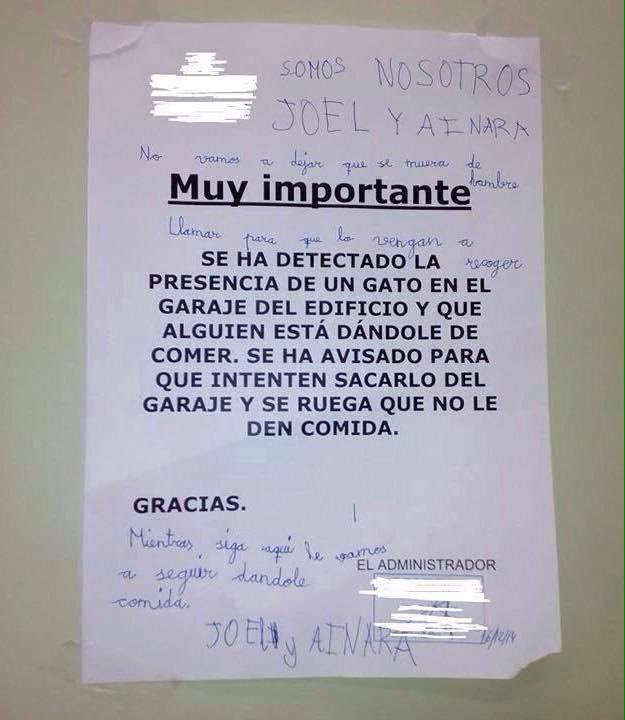 SOMOS NOSOTROS
JOEL Y AINARA
No vamos a dejar que se muera de
hambre
Muy importante
Llamar para que lo vengan a
recoger
SE HA DETECTADO LA
PRESENCIA DE UN GATO EN EL
GARAJE DEL EDIFICIO Y QUE
ALGUIEN ESTÁ DÁNDOLE DE
COMER. SE HA AVISADO PARA
QUE INTENTEN SACARLO DEL
GARAJE Y SE RUEGA QUE NO LE
DEN COMIDA.
GRACIAS.
Mientras siga aquí le vamos
a seguir dandole
comida.
EL ADMINISTRADOR
JOEL y AINARA